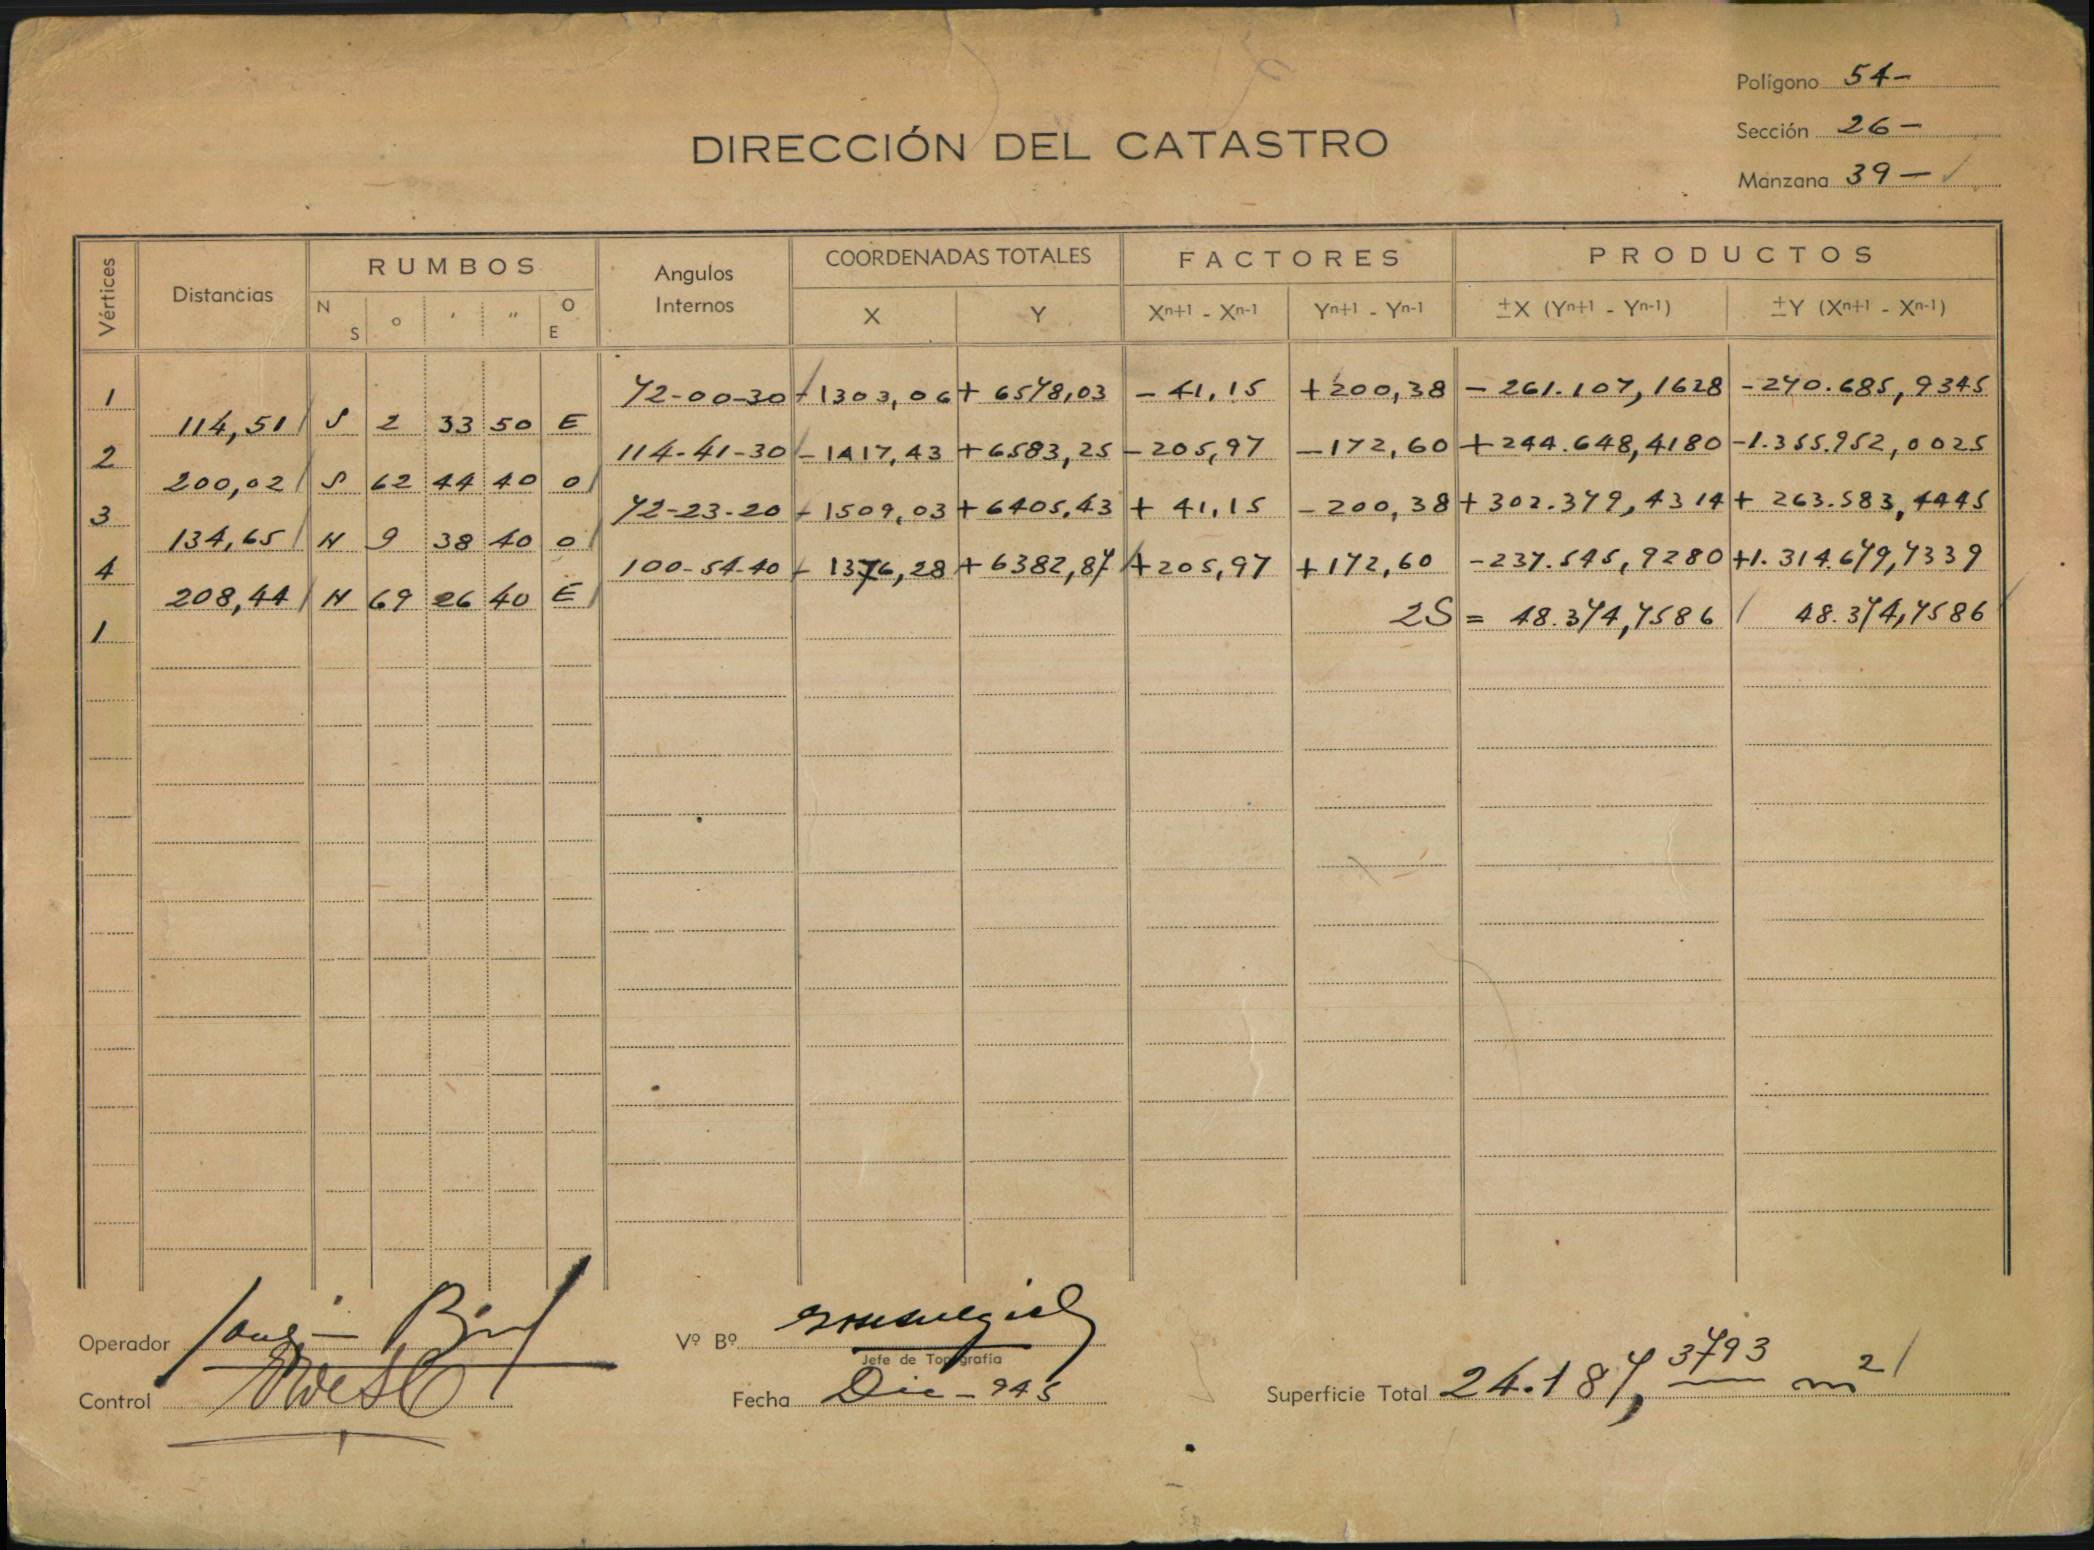 Polígono 54-
Sección 26-
Manzana 39-
DIRECCIÓN DEL CATASTRO
Vértices Distancias RUMBOS Angulos Internos COORDENADAS TOTALES FACTORES PRODUCTOS
N S ° ' " O E X Y Xn+1 - Xn-1 Yn+1 - Yn-1 ±X (Yn+1 - Yn-1) ±Y (Xn+1 - Xn-1)
1 72-00-30 - 1303,06 + 6578,03 - 41,15 +200,38 - 261.107,1628 -270.685,9345
114,51 S 2 33 50 E
2 114-41-30 - 1417,43 +6583,25 - 205,97 -172,60 +244.648,4180 -1.355.952,0025
200,02 S 62 44 40 O
3 72-23-20 - 1509,03 +6405,43 + 41,15 -200,38 +302.379,4314 + 263.583,4445
134,65 N 9 38 40 O
4 100-54-40 - 1376,28 +6382,87 +205,97 +172,60 -237.545,9280 +1.314.679,7339
208,44 N 69 26 40 E
1 2S = 48.374,7586 48.374,7586
Operador
Vº Bº
Jefe de Topografía
Control
Fecha Dic - 945
Superficie Total 24.187,3793 m2